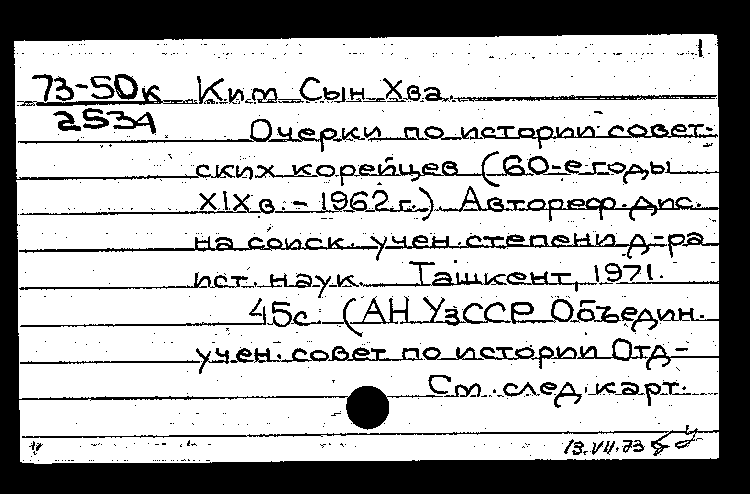 1
73-50к Ким Сын Хва.
2534
Очерки по истории совет-
ских корейцев (60-е годы
XIX в. - 1962 г.). Автореф. дис.
на соиск. учен. степени д-ра
ист. наук. Ташкент, 1971.
45с. (АН УзССР Объедин.
учен. совет по истории Отд-
См. след. карт.
13.VII.73